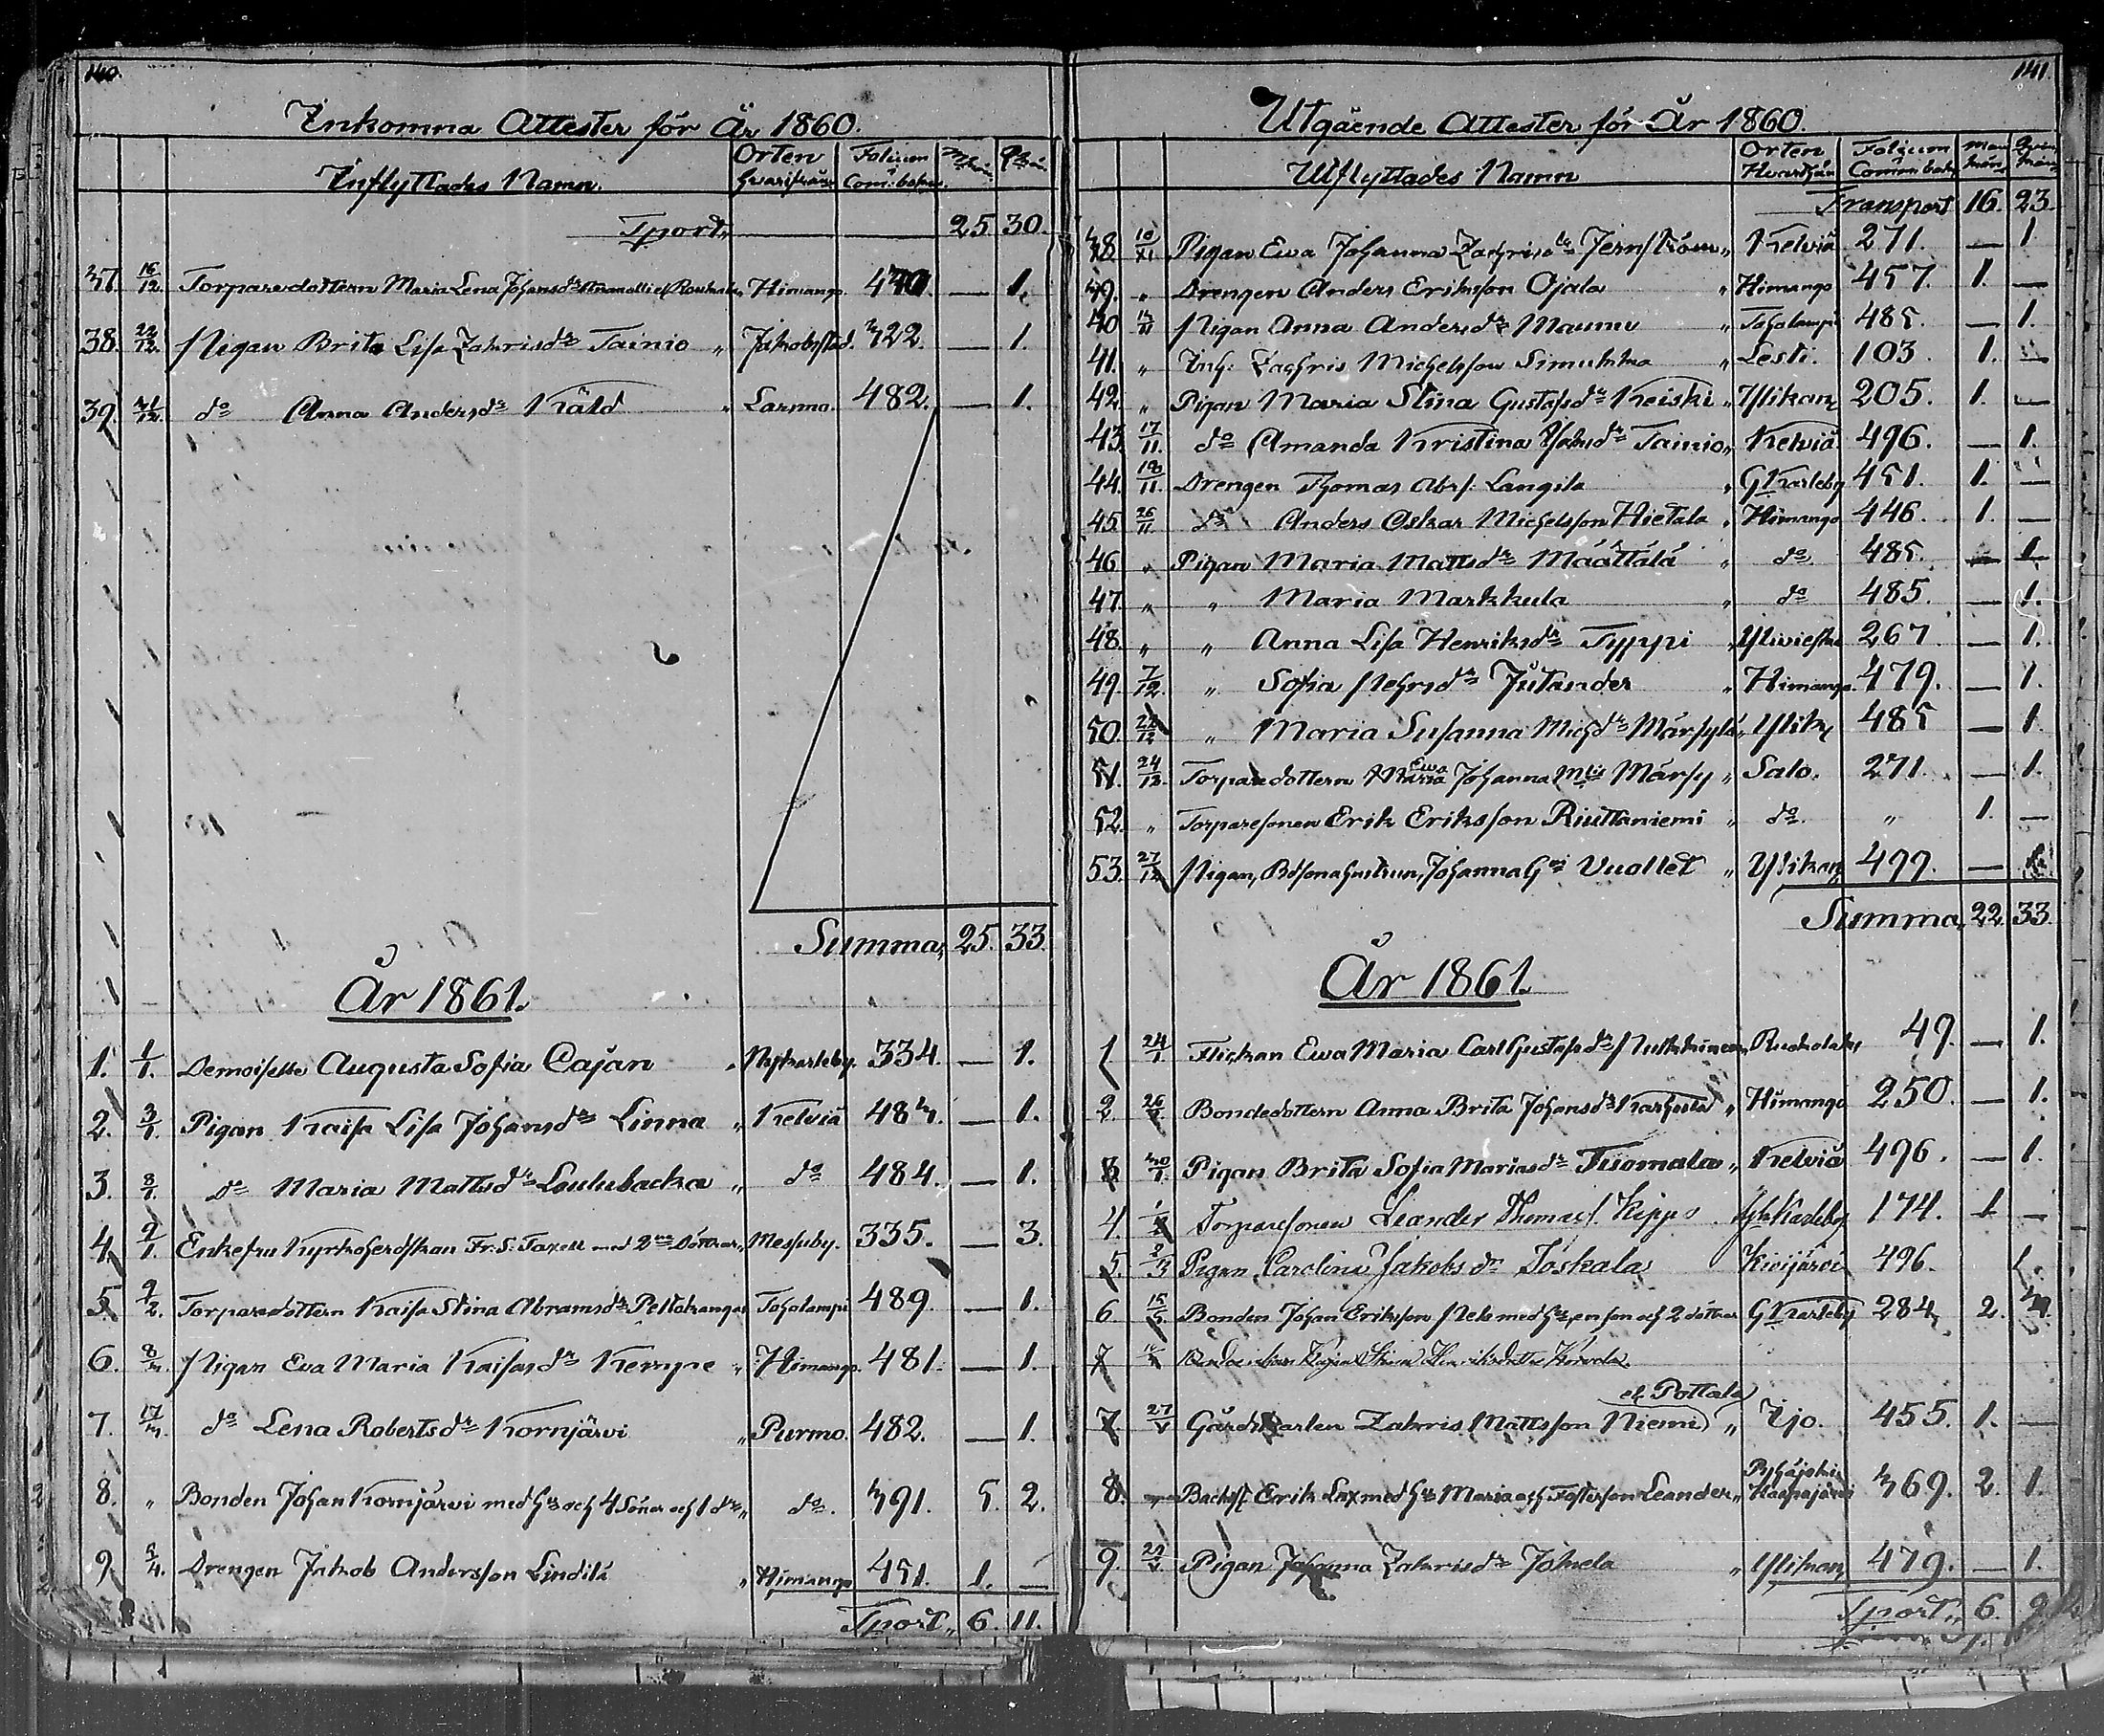 140.
Inkomna Attester för År 1860.
Inflyttades Namn. Orten Folium
Tport 25 30.
37. 16/12 Torparedottern Maria Lena Johansdr Himango. 470. — 1.
38. 22/12 Pigan Brita Lisa Zakrisdr Tainio „ Jakobstad. 422. — 1.
39. 31/12 do Anna Andersdr Kåld „ Larmo. 482. — 1.
Summa, 25. 33.
År 1861.
1. 1/1. Demoiselle Augusta Sofia Cajan „ Nykarleby. 334. — 1.
2. 3/1. Pigan Kaisa Lisa Johansdr Linna „ Kelviå 484. — 1.
3. 8/1. do Maria Mattsdr Loulubacka „ do 484. — 1.
4. 9/1. Enkefru Kyrkoherdskan Fr. S. Taxell med 2ne Döttrar „ Messuby. 335. — 3.
5. 9/2. Torparedottern Kaisa Stina Abramsdr Peltokangas Toholampi 489. — 1.
6. 8/4. Pigan Eva Maria Kaisasdr Kempe „ Himango. 481. — 1.
7. 17/4. do Lena Robertsdr Kornjärvi „ Purmo. 482. — 1.
8. „ Bonden Johan Kornjärvi med hu och 4 Söner och 1 dr „ do. 491. 5. 2.
9. 5/4. Drengen Jakob Andersson Lindilä „ Himango 451. 1. —
Tport „ 6. 11.
141.
Utgående Attester för År 1860.
Utflyttades Namn Orten Folium
Transport 16. 23.
38 10/11 Pigan Ewa Johanna Zachrisdr Jernström „ Kelviå 271. — 1.
39. „ Drengen Anders Eriksson Ojala „ Himango 457. 1. —
40 14/11 Pigan Anna Andersdr Maunu „ Toholampi 485. — 1.
41. „ Inh: Zachris Michelsson Simukka „ Lesti. 103. 1. —
42. „ Pigan Maria Stina Gustafsdr Keiski „ Ylikan 205. 1. —
43. 17/11. do Amanda Kristina Tainio „ Kelviå 496. — 1.
44. 18/11. Drengen Thomas Abrs: Langila „ GKarleby 451. 1. —
45. 26/11 do Anders Oskar Michelsson Hietala „ Himango 446. 1. —
46 „ Pigan Maria Mattsdr Määttälä „ do 485. — 1.
47. „ „ Maria Markkula „ do 485. — 1.
48. „ „ Anna Lisa Henriksdr Typpi „ Ylivieska 267 — 1.
49. 7/12. „ Sofia Pehrsdr Jutander „ Himango. 479. — 1.
50. 22/12 „ Maria Susanna Michdr Märsylä „ Ylik 485 — 1.
51. 24/12. Torparedottern Ewa Johanna Märsy „ Salo. 271. — 1.
52. „ Torparesonen Erik Eriksson Riuttaniemi „ do. „ 1. —
53. 27/12 Pigan, Johanna Vuollet „ Ylikan 477. —
Summa, 22. 33.
År 1861.
1 24/1 Flickan Ewa Maria Carl Gustafsdr Ruokolaks 49. — 1.
2. 26/1 Bondedottern Anna Brita Johansdr Karhula „ Himango 250. — 1.
3. 30/1. Pigan Brita Sofia Mariasdr Tuomala „ Kelviå 496. — 1.
4. Torparesonen Leander Thomass. Kippo GKarleby 174. 1 —
5. 2/3 Pigan Carolina Jakobsdr Joskala Kivijärvi 496. 1.
6 15/3. Bonden Johan Eriksson med hu, en son och 2 döttrar GKarleby 284 2.
7
el. Pottala
7. 27/5 Gårdskarlen Zakris Mattsson Niemi „ Ijo. 455. 1. —
8. Erik Lax med hu Maria och Fosterson Leander „ 369. 2. 1.
9. Pigan Johanna Zakrisdr Jokela „ Ylikan 479. — 1.
Tport „ 6. 9